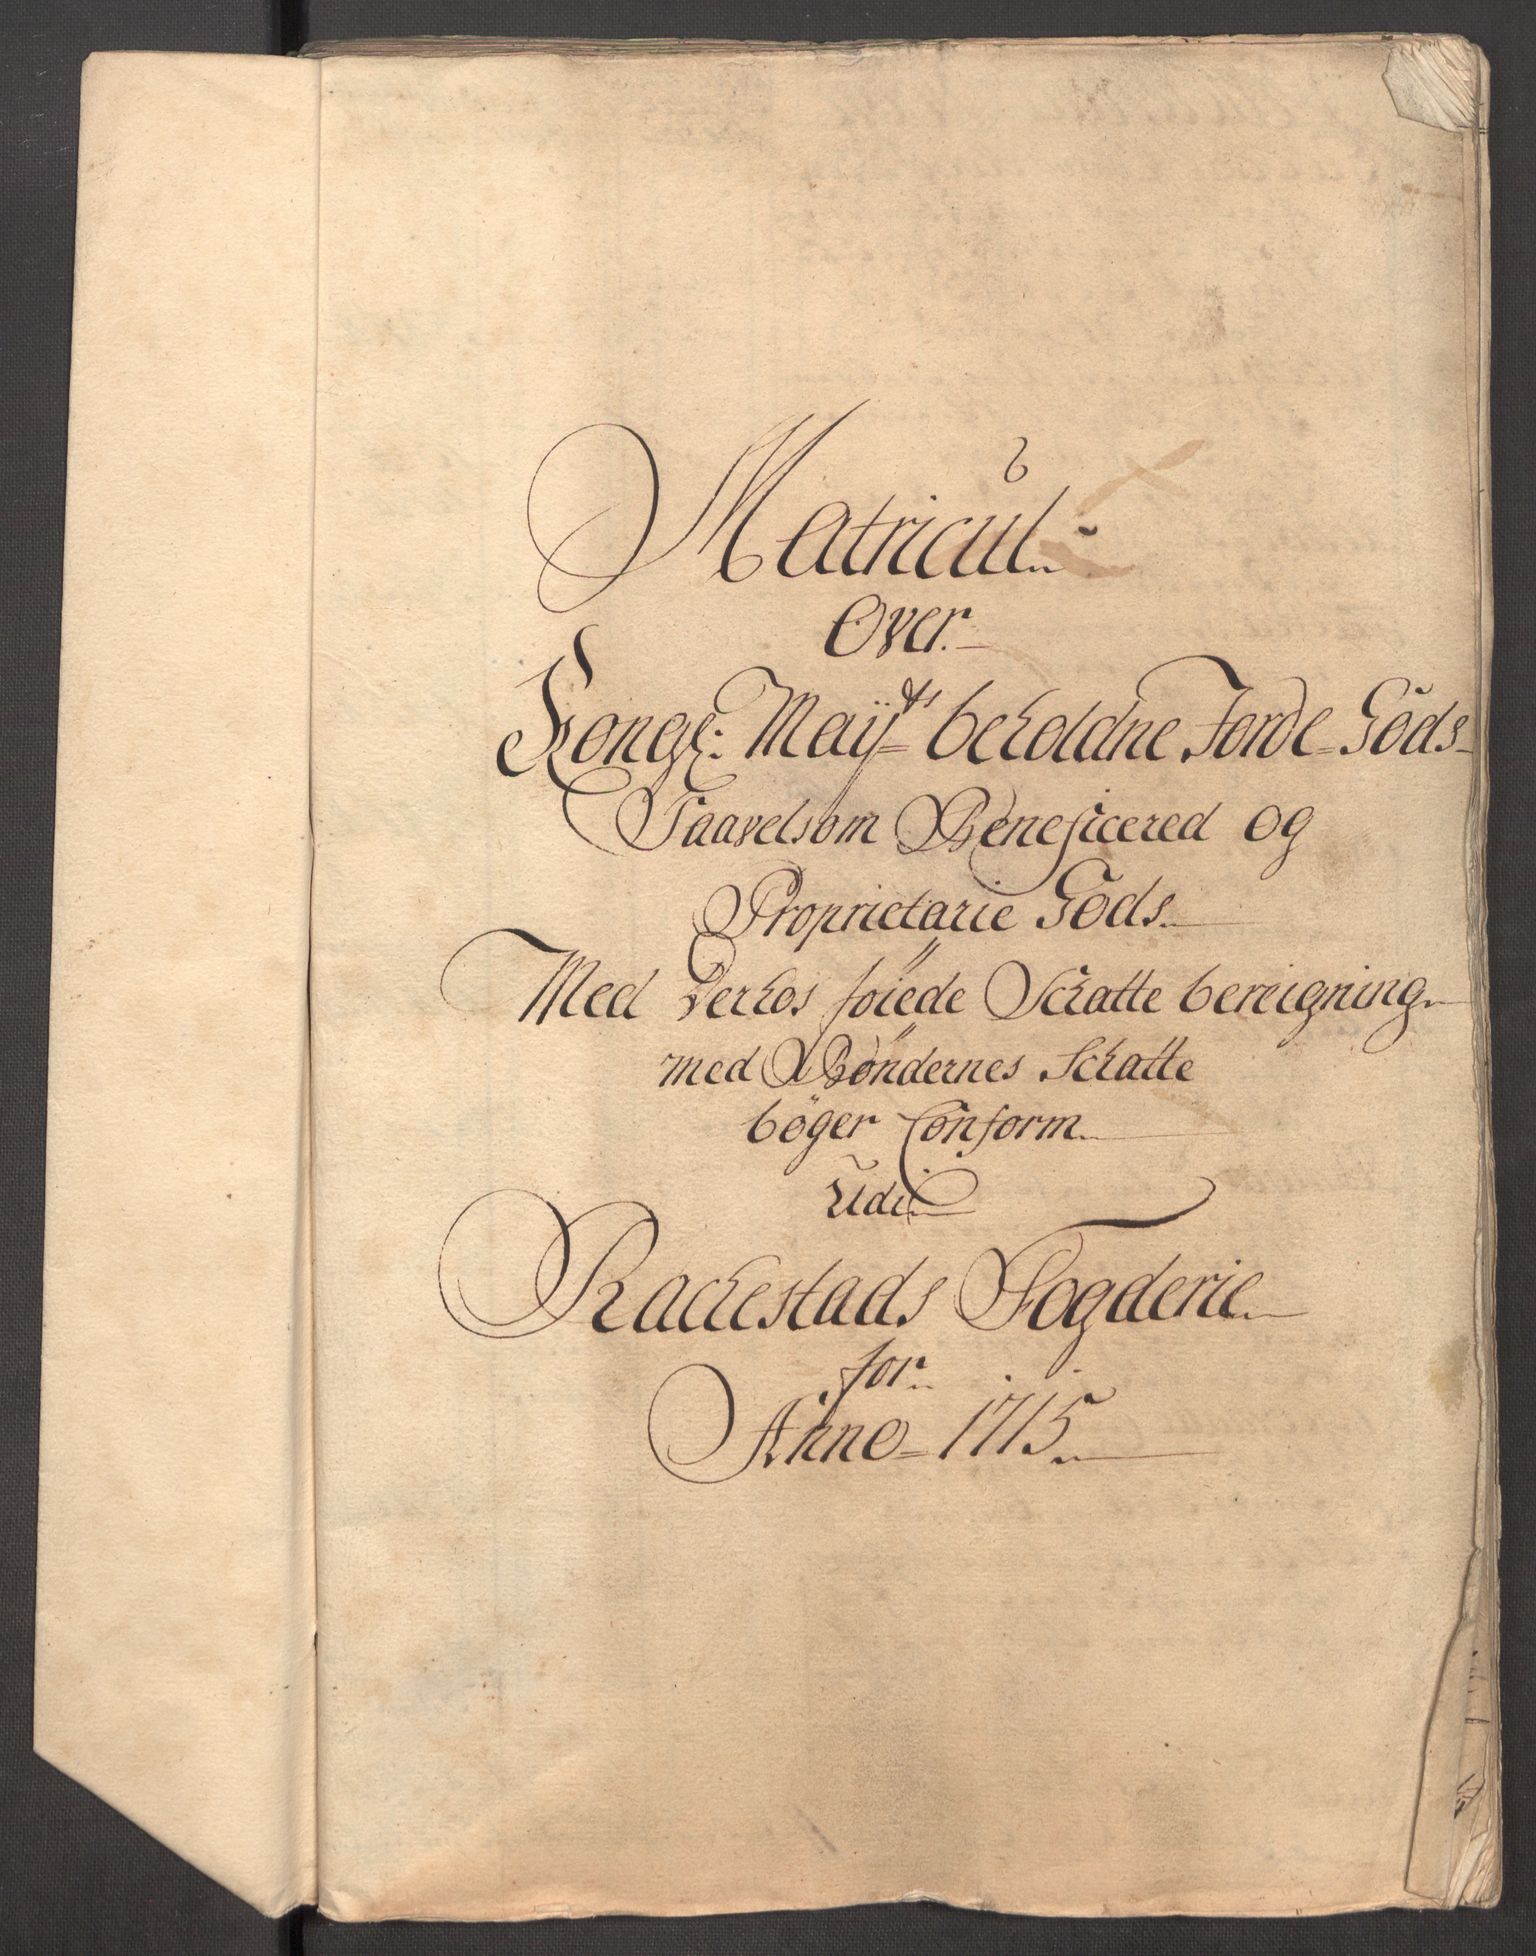 Matricul
Over
Kongl: Maÿts beholdne Jorde-Göds
Saavelsom Beneficered og
Proprietarie Göds
Med derhos föiede Schatte bereigning
med Böndernes Schatte
böger Conform
Udi
Rachestads Fogderie
for
Anno 1715